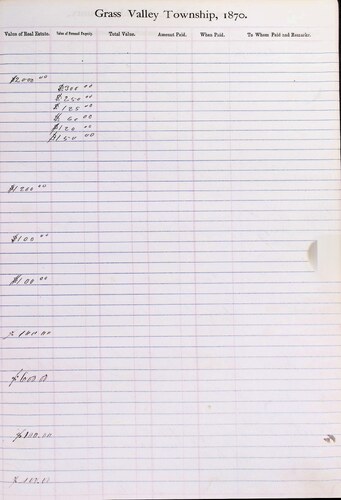 Grass Valley Township, 1870.
Value of Real Estate. Value of Personal Property. Total Value. Amount Paid. When Paid. To Whom Paid and Remarks.
$2000 00
$300 00
$250 00
$125 00
$ 50 00
$120 00
$150 00
$1200 00
$100 00
$100 00
$ 100.00
$600.00
$100.00
$ 100.00